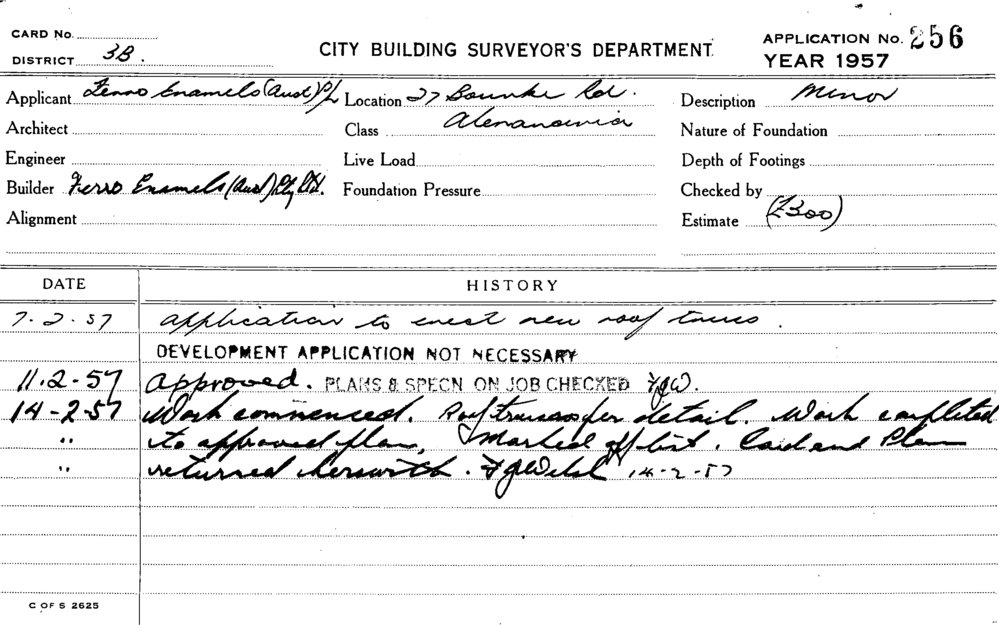 CARD No.
DISTRICT 3B.
CITY BUILDING SURVEYOR'S DEPARTMENT.
APPLICATION No. 256
YEAR 1957
Applicant Ferro Enamels (Aust) P/L Location 27 Bourke Rd. Description Minor
Architect Class Alexandria Nature of Foundation
Engineer Live Load Depth of Footings
Builder Ferro Enamels (Aust) Pty Ltd. Foundation Pressure Checked by
Alignment Estimate (£300)
DATE HISTORY
7.2.57 Application to erect new roof truss.
DEVELOPMENT APPLICATION NOT NECESSARY
11.2-57 Approved. PLANS & SPECN ON JOB CHECKED FJW.
14-2-57 Work commenced. Roof trusses per detail. Work completed
" to approved plan. Marked off list. Card and Plan
" returned herewith. FJWelsh 14-2-57
C OF S 2625